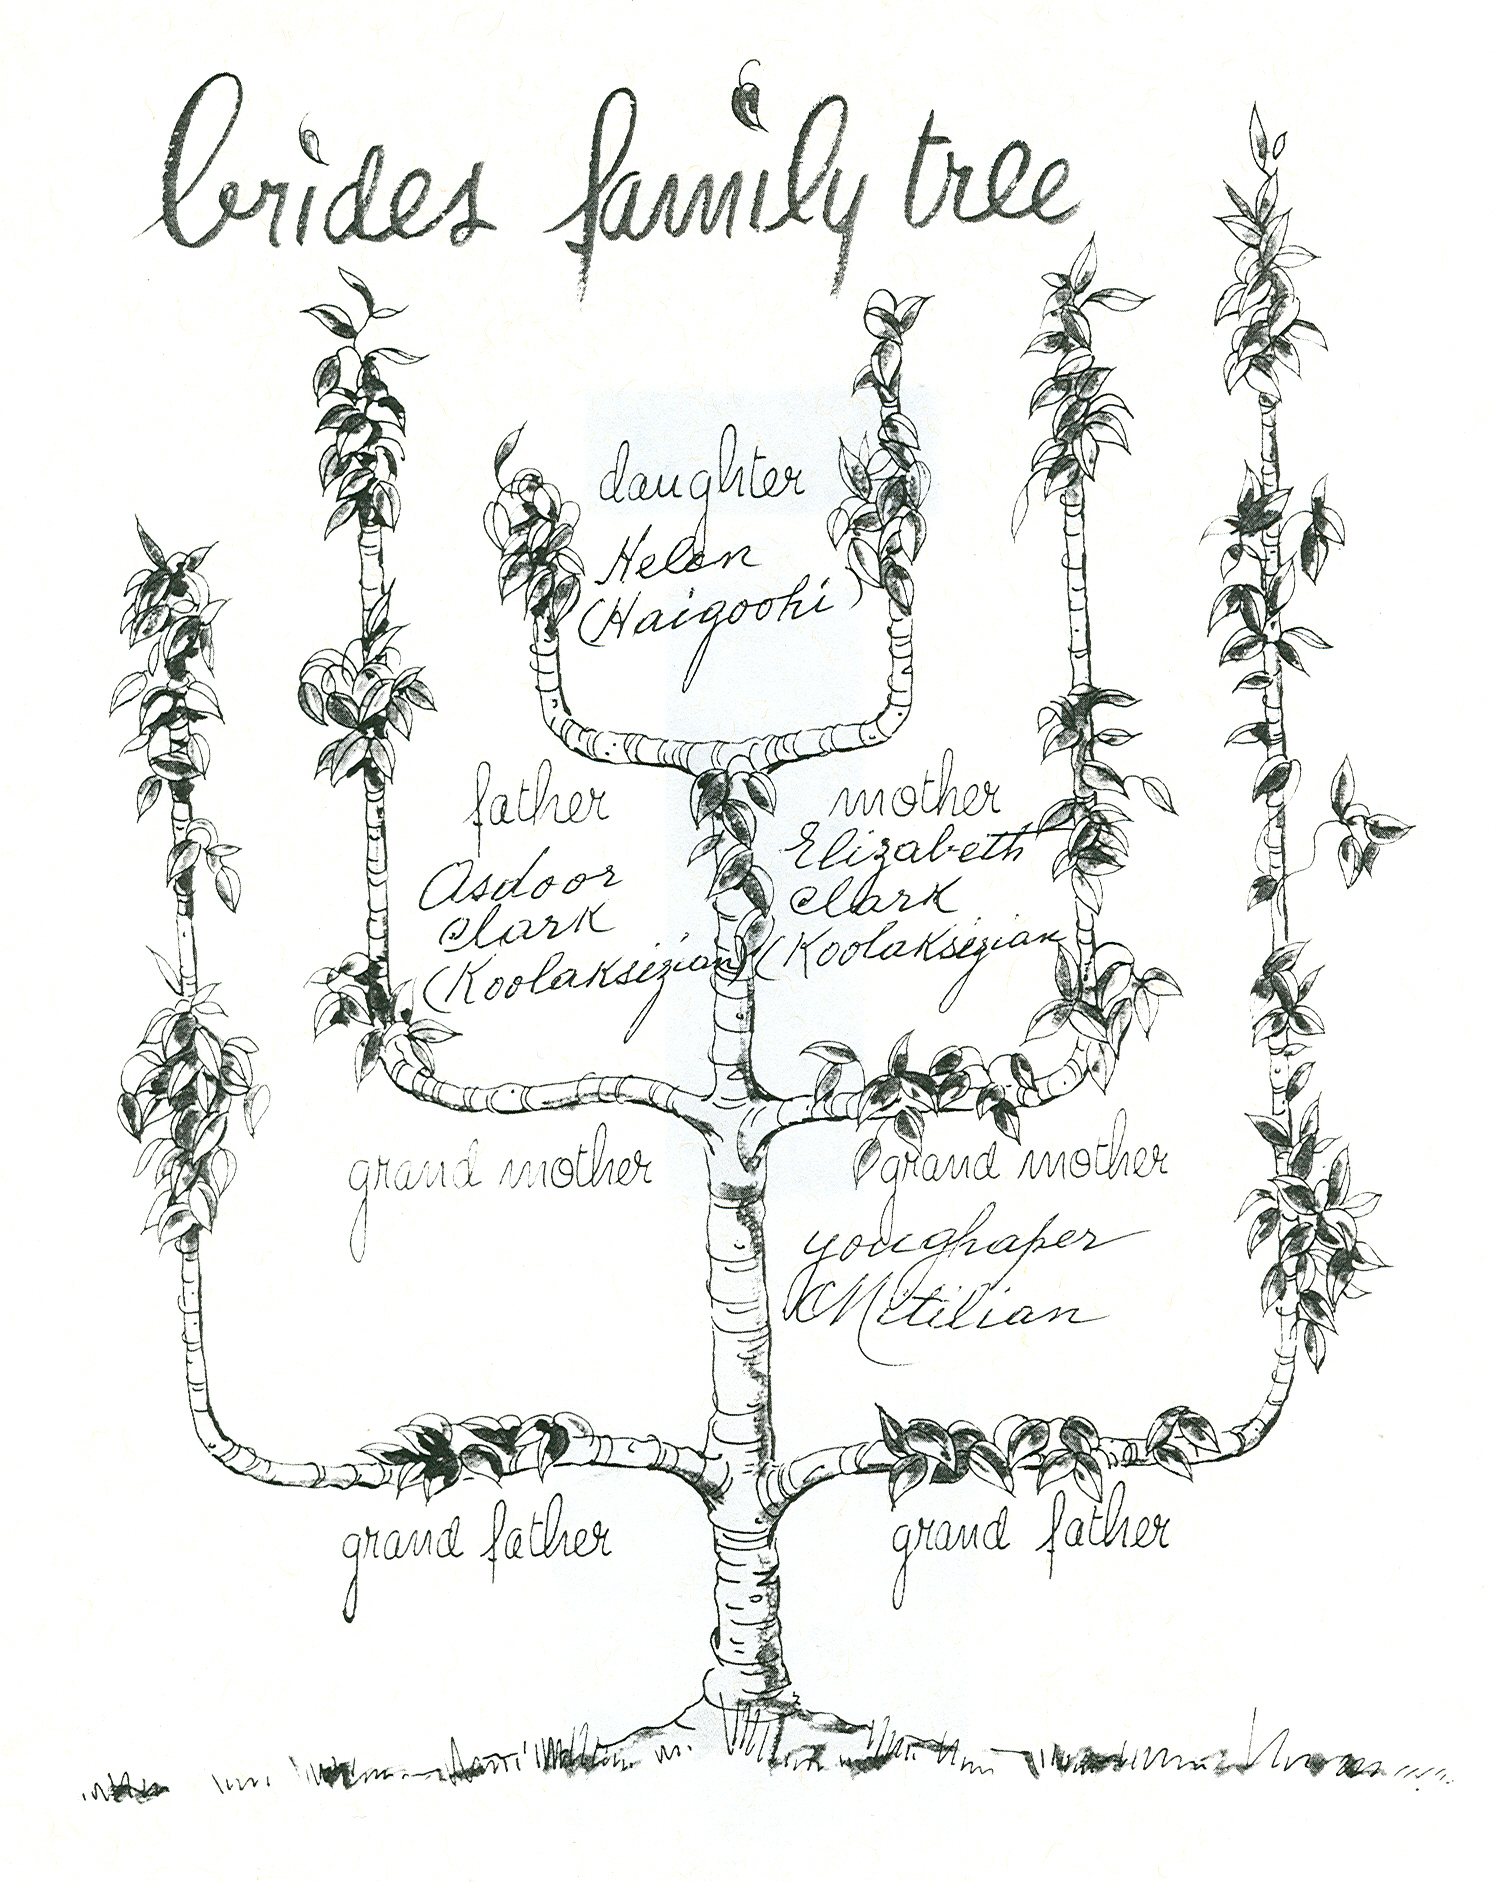 brides family tree
daughter
Helen
(Haigoohi)
father
Asdoor
Clark
(Koolaksizian)
mother
Elizabeth
Clark
(Koolaksizian
grand mother
grand mother
youghaper
Mitilian
grand father
grand father